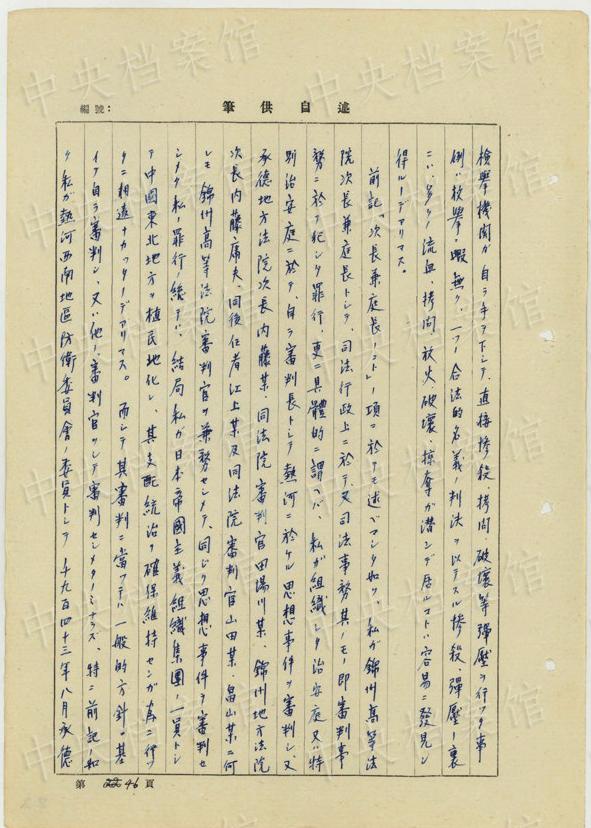 編號：
筆供自述
檢舉機関ガ自ラ手ヲ下シテ直接惨殺、拷問、破壊等彈壓ヲ行ッタ事
例ハ枚擧ニ暇無ク、一つ一つノ合法的名義ノ判決ヲ以テスル惨殺、彈壓ノ裏
ニハ、多クノ流血、拷問、放火破壊、掠奪ガ潜ンデ居ルコトハ容易ニ發見シ
得ルノデアリマス。
前記「次長兼庭長ノコト」ノ項ニ於テモ述ベマシタ如ク、私ガ錦州高等法
院次長兼庭長トシテ、司法行政上ニ於テ、又司法事務其ノモノ即審判事
務ニ於テ犯シタ罪行、更ニ具體的ニ謂ヘバ、私ガ組織シタ治安庭又ハ特
別治安庭ニ於テ、自ラ審判長トシテ熱河ニ於ケル思想事件ヲ審判シ、又
承德地方法院次長内藤某、同法院審判官田湯川某、錦州地方法院
次長内藤庸夫、同後任者江上某及同法院審判官山田某、畠山某ニ何
レモ錦州高等法院審判官ヲ兼務セシメテ、同ジク思想事件ヲ審判セ
シメタ私ノ罪行ノ総テハ、結局私ガ日本帝國主義組織集團ノ一員トシ
テ中國東北地方ヲ植民地化シ、其支配統治ヲ確保維持センガ為ニ行ッ
タニ相違ナカッタノデアリマス。而シテ其審判ニ當ッテハ一般的方針ニ基
イテ自ラ審判シ、又ハ他ノ審判官ヲシテ審判セシメタノミナラズ、特ニ前記ノ如
ク私ガ熱河西南地區防衛委員會ノ委員トシテ一千九百四十三年八月承德
第 46 頁
中央档案馆